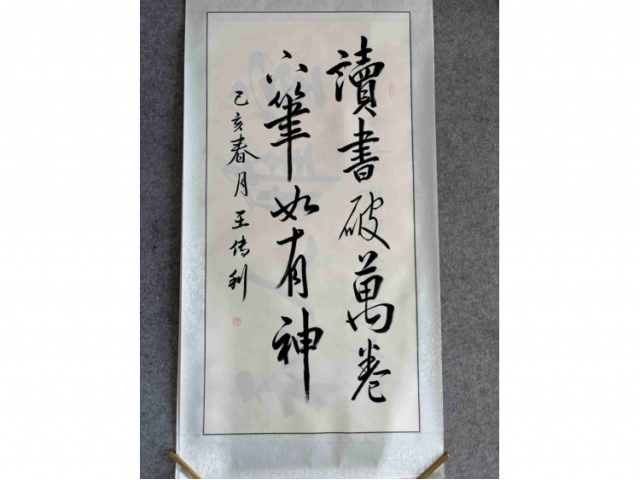 讀書破萬卷
下筆如有神
己亥春月王传利